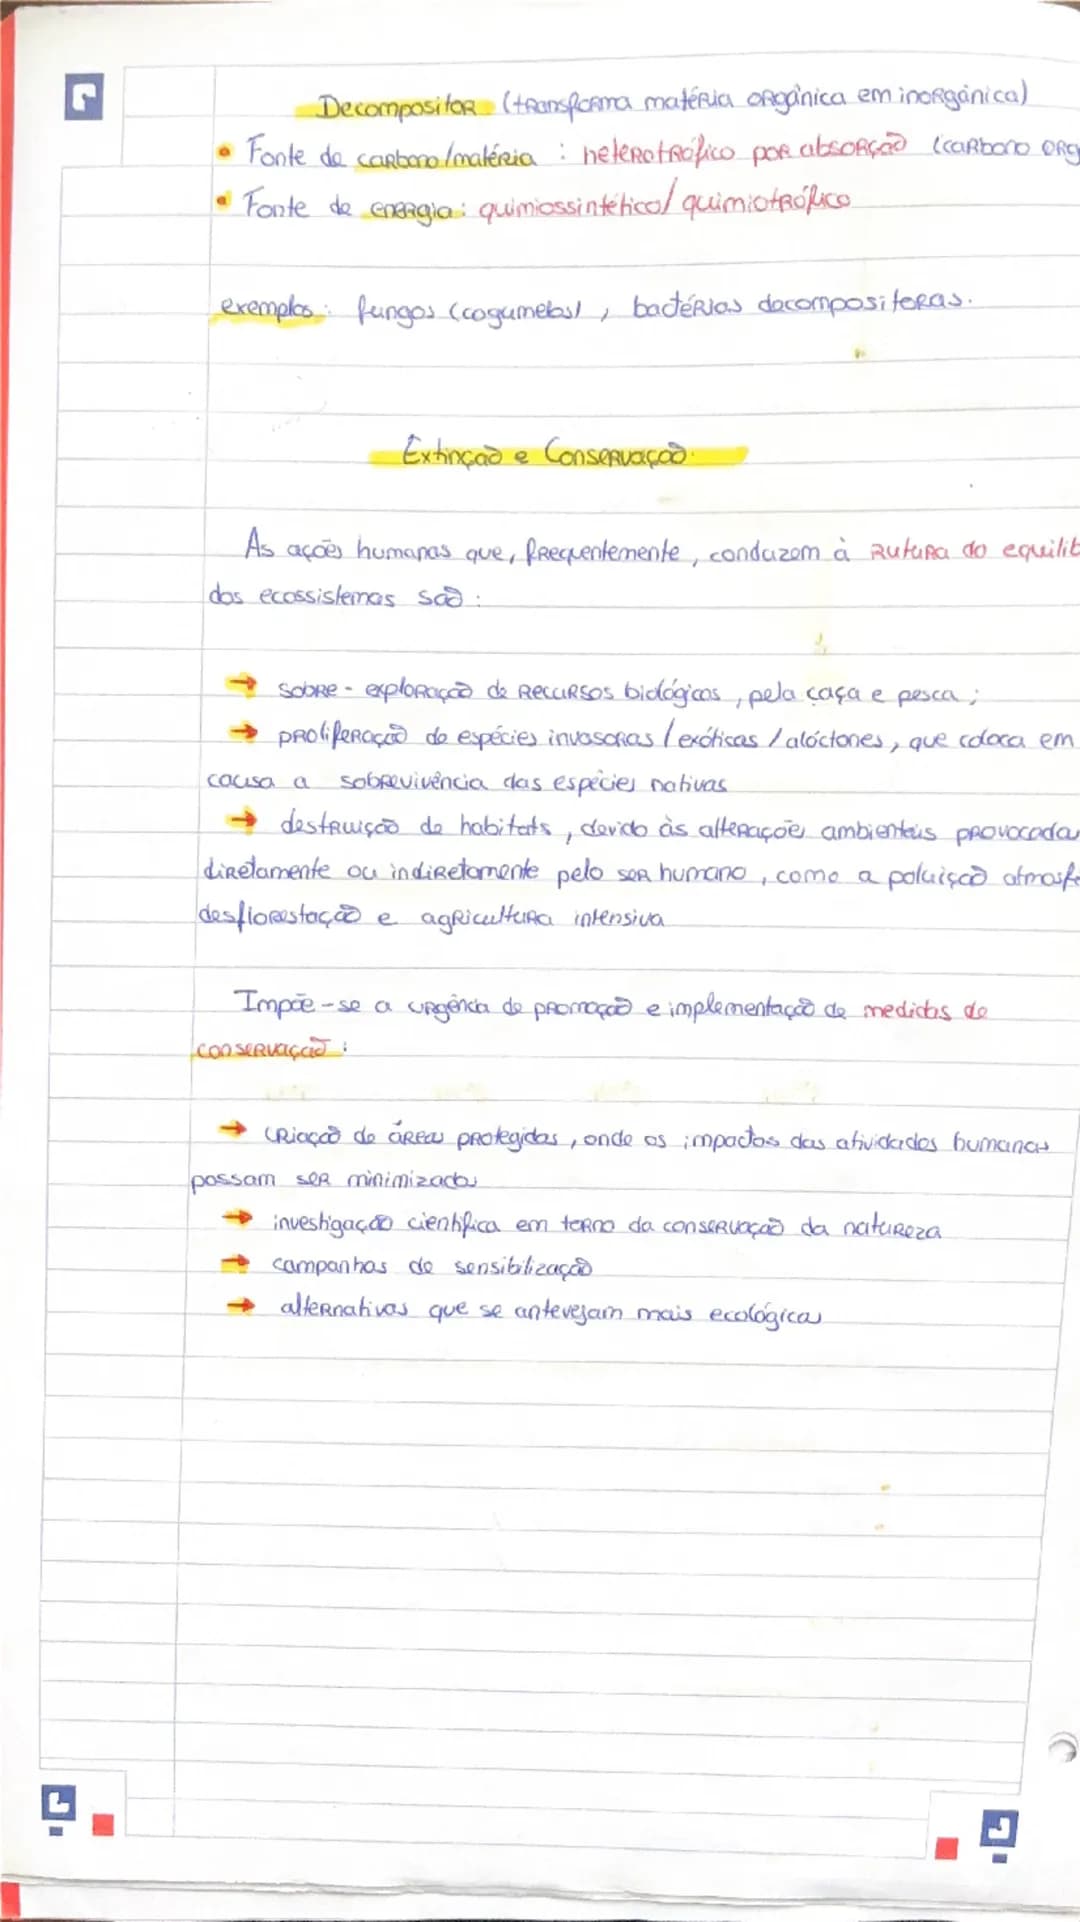 Decompositor (transforma matéria orgânica em inorgânica)
• Fonte de carbono/matéria : heterotrófico por absorção (carbono org
• Fonte de energia: quimiossintético/ quimiotrófico
exemplos: fungos (cogumelos), bactérias decompositoras.
Extinção e Conservação.
As ações humanas que, frequentemente, conduzem à rutura do equilib
dos ecossistemas são:
→ sobre-exploração de recursos biológicos, pela caça e pesca;
→ proliferação de espécies invasoras /exóticas /alóctones, que coloca em
causa a sobrevivência das espécies nativas
→ destruição de habitats, devido às alterações ambientais provocadas
diretamente ou indiretamente pelo ser humano, como a poluição atmosfe
desflorestação e agricultura intensiva
Impõe-se a urgência de promoção e implementação de medidas de
conservação:
→ criação de áreas protegidas, onde os impactos das atividades humanas
possam ser minimizados
→ investigação científica em torno da conservação da natureza
→ campanhas de sensibilização
→ alternativas que se antevejam mais ecológicas